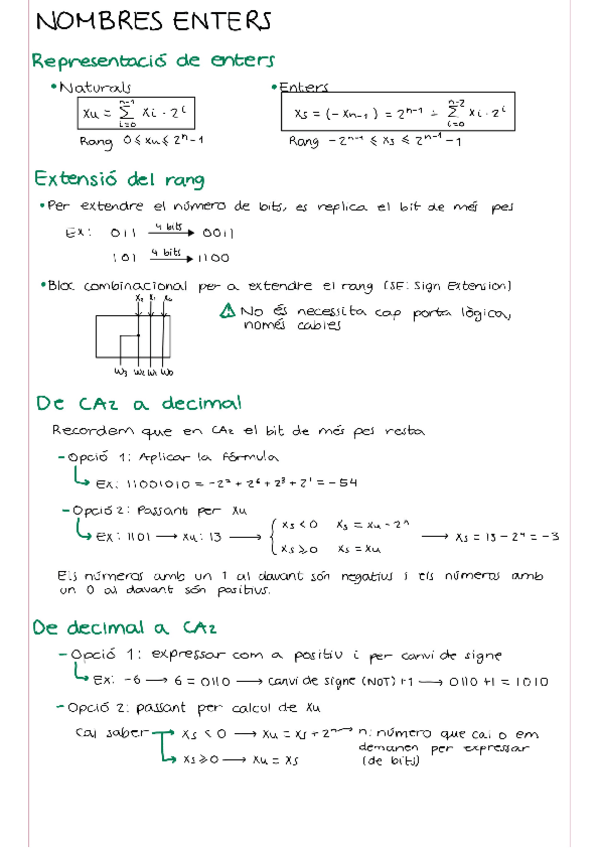 NOMBRES ENTERS
Representació de enters
• Naturals
Xu = Σ_{i=0}^{n-1} Xi · 2^i
Rang 0 ≤ Xu ≤ 2^n - 1
• Enters
Xs = (-Xn-1) = 2^{n-1} ÷ Σ_{i=0}^{n-2} Xi · 2^i
Rang -2^{n-1} ≤ Xs ≤ 2^{n-1} - 1
Extensió del rang
• Per extendre el número de bits, es replica el bit de més pes
Ex: 011 4 bits → 0011
101 4 bits → 1100
• Bloc combinacional per a extendre el rang (SE: Sign Extension)
X2 X1 X0
W3 W2 W1 W0
No és necessita cap porta lògica,
només cables
De CA2 a decimal
Recordem que en CA2 el bit de més pes resta
- Opció 1: Aplicar la fórmula
Ex: 11001010 = -2^7 + 2^6 + 2^3 + 2^1 = -54
- Opció 2: Passant per Xu
Ex: 1101 → Xu: 13 → { Xs < 0 Xs = Xu - 2^n
Xs ≥ 0 Xs = Xu
→ Xs = 13 - 2^4 = -3
Els números amb un 1 al davant són negatius i els números amb
un 0 al davant són positius.
De decimal a CA2
- Opció 1: expressar com a positiu i per canvi de signe
Ex: -6 → 6 = 0110 → canvi de signe (NOT) +1 → 0110 +1 = 1010
- Opció 2: passant per calcul de Xu
Cal saber → Xs < 0 → Xu = Xs + 2^n → n: número que cal o em
demanen per expressar
(de bits)
→ Xs ≥ 0 → Xu = Xs